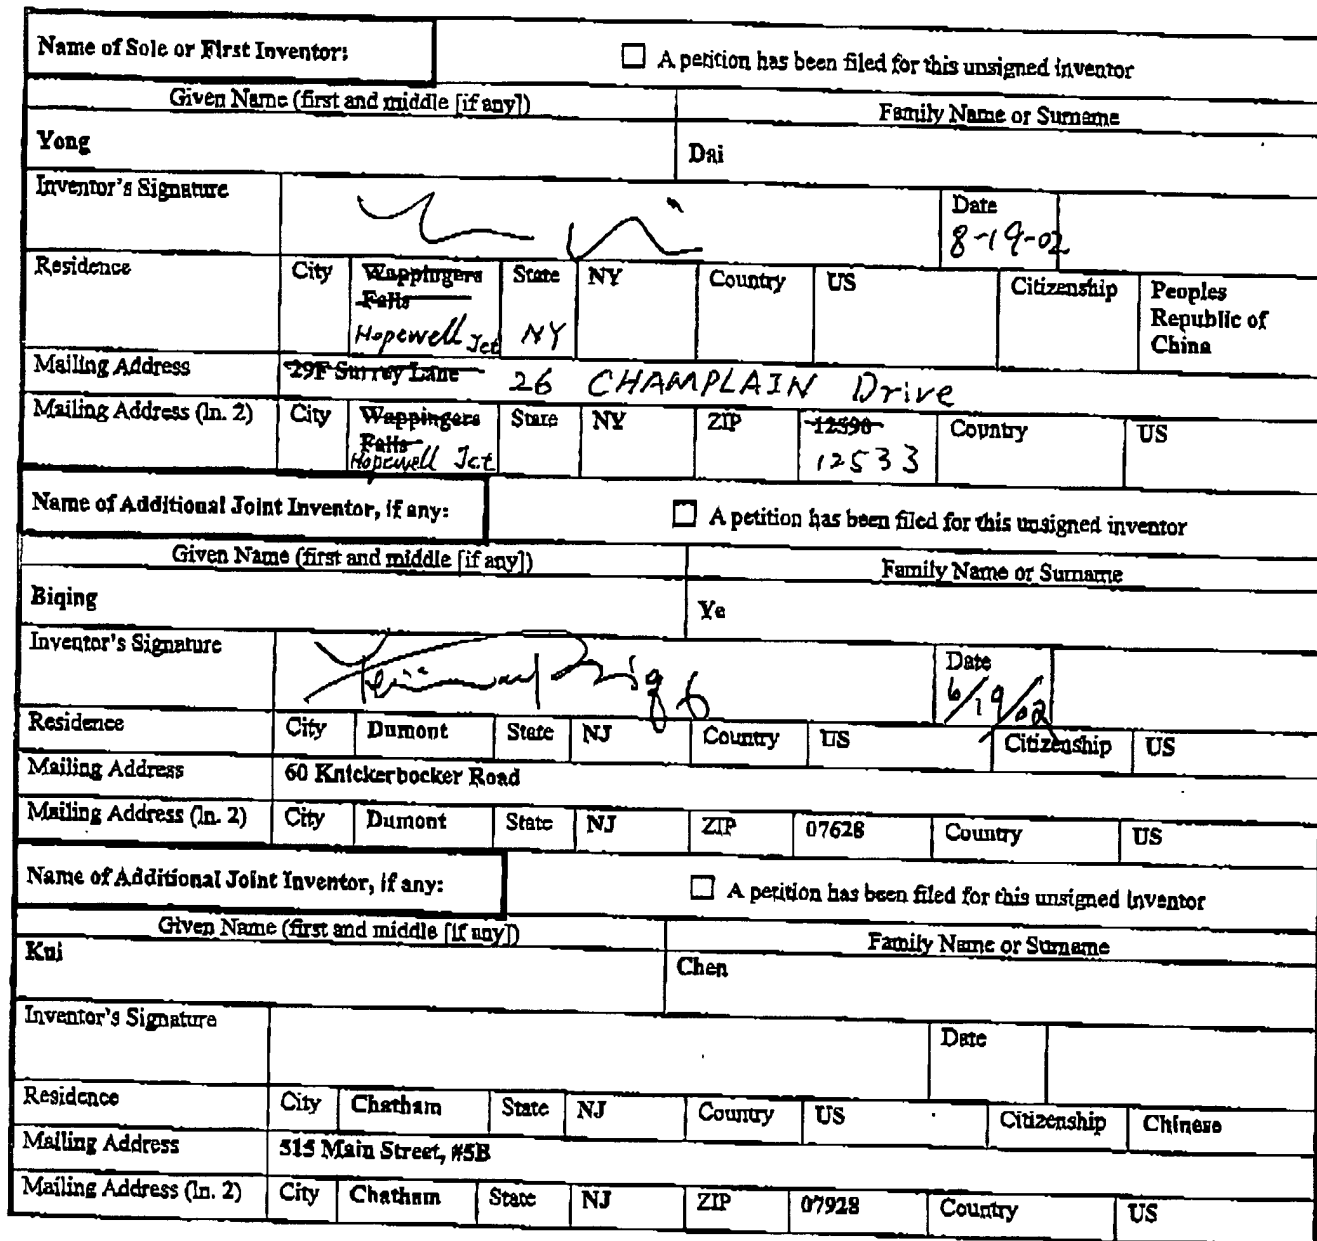 Name of Sole or First Inventor: ☐ A petition has been filed for this unsigned inventor
Given Name (first and middle [if any]) Family Name or Surname
Yong Dai
Inventor's Signature Date
8-19-02
Residence City Wappingers Falls State NY Country US Citizenship Peoples Republic of China
Hopewell Jct NY
Mailing Address 29F Surrey Lane 26 CHAMPLAIN Drive
Mailing Address (ln. 2) City Wappingers Falls State NY ZIP 12590 Country US
Hopewell Jct 12533
Name of Additional Joint Inventor, if any: ☐ A petition has been filed for this unsigned inventor
Given Name (first and middle [if any]) Family Name or Surname
Biqing Ye
Inventor's Signature Date
6/19/02
Residence City Dumont State NJ Country US Citizenship US
Mailing Address 60 Knickerbocker Road
Mailing Address (ln. 2) City Dumont State NJ ZIP 07628 Country US
Name of Additional Joint Inventor, if any: ☐ A petition has been filed for this unsigned inventor
Given Name (first and middle [if any]) Family Name or Surname
Kui Chen
Inventor's Signature Date
Residence City Chatham State NJ Country US Citizenship Chinese
Mailing Address 515 Main Street, #5B
Mailing Address (ln. 2) City Chatham State NJ ZIP 07928 Country US